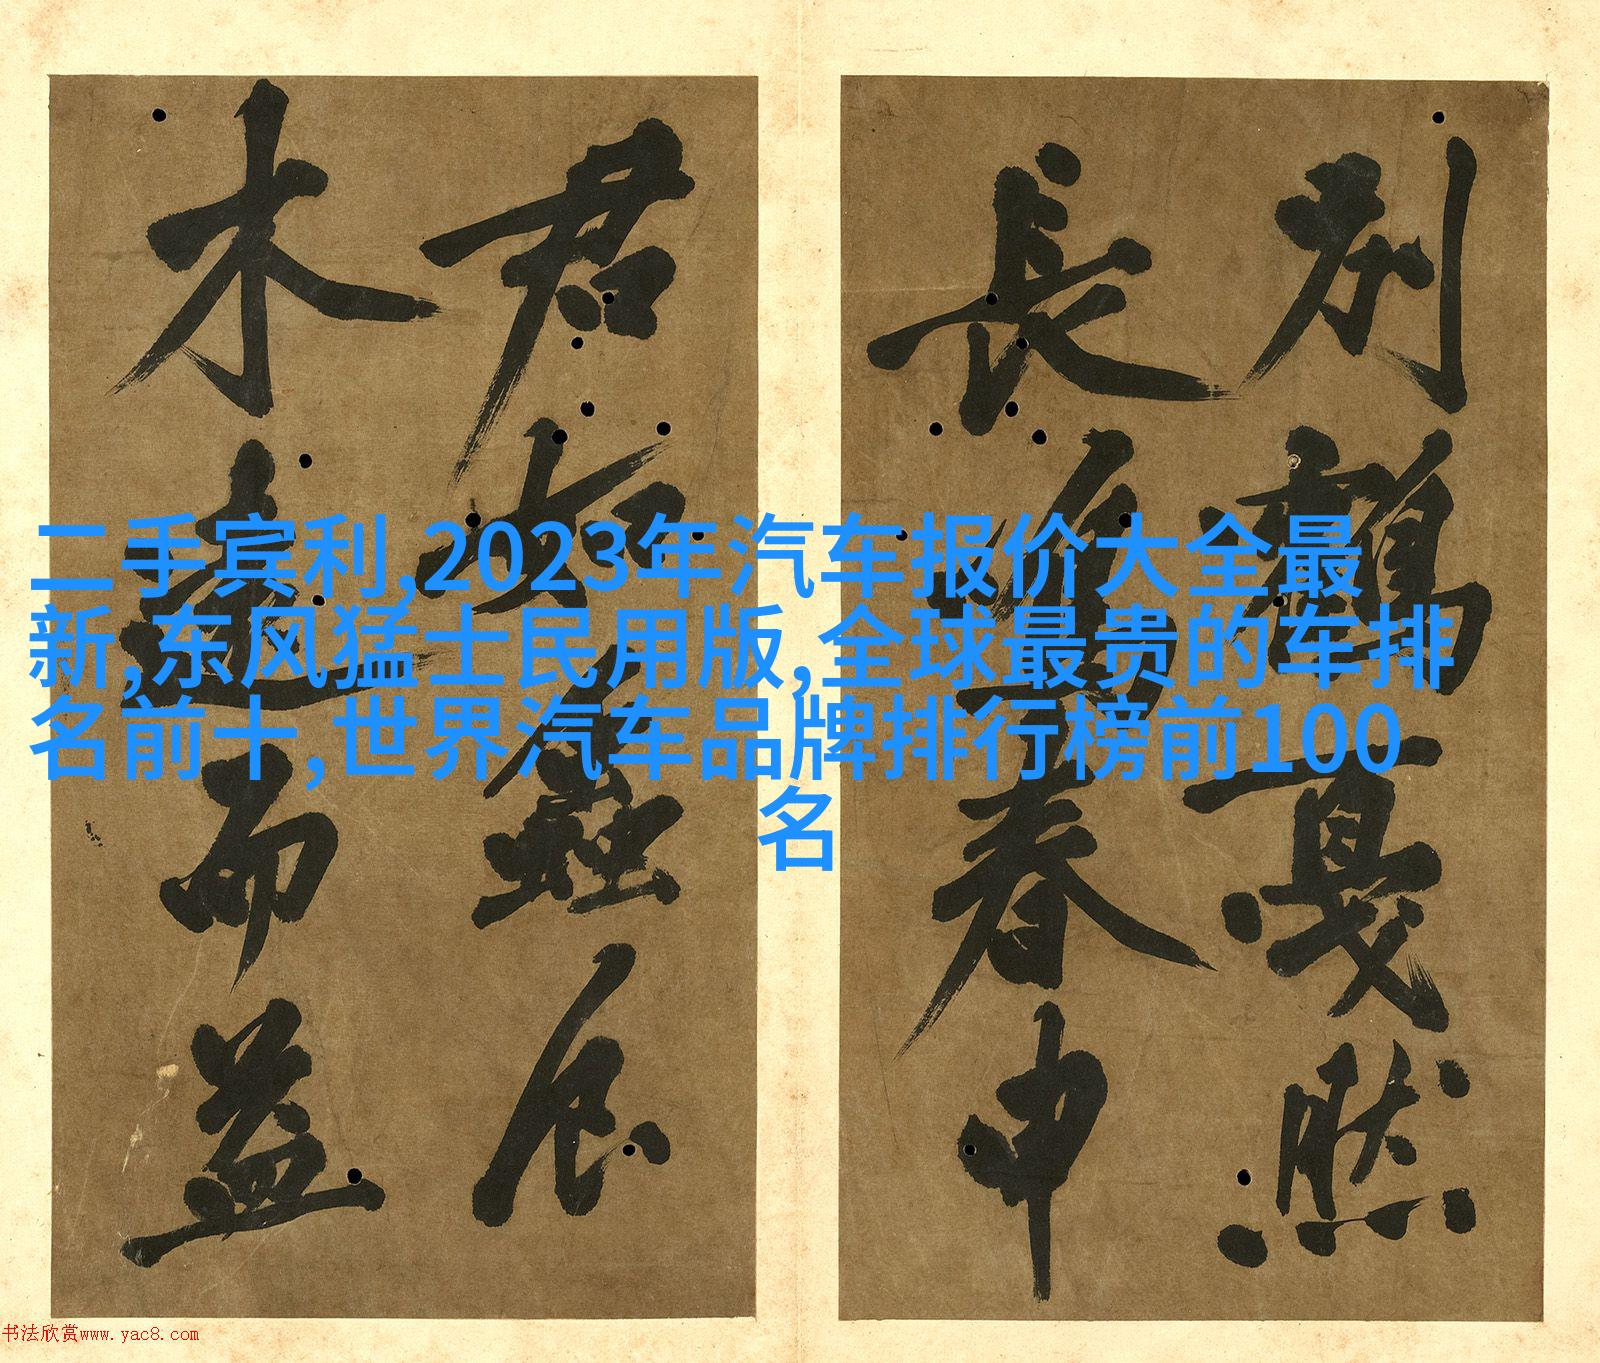 二手宾利,2023年汽车报价大全最
新,东风猛士民用版,全球最贵的车排
名前十,世界汽车品牌排行榜前100
名
別鶴戛然
長唯春申
君
木造而益
书法欣赏www.yac8.com